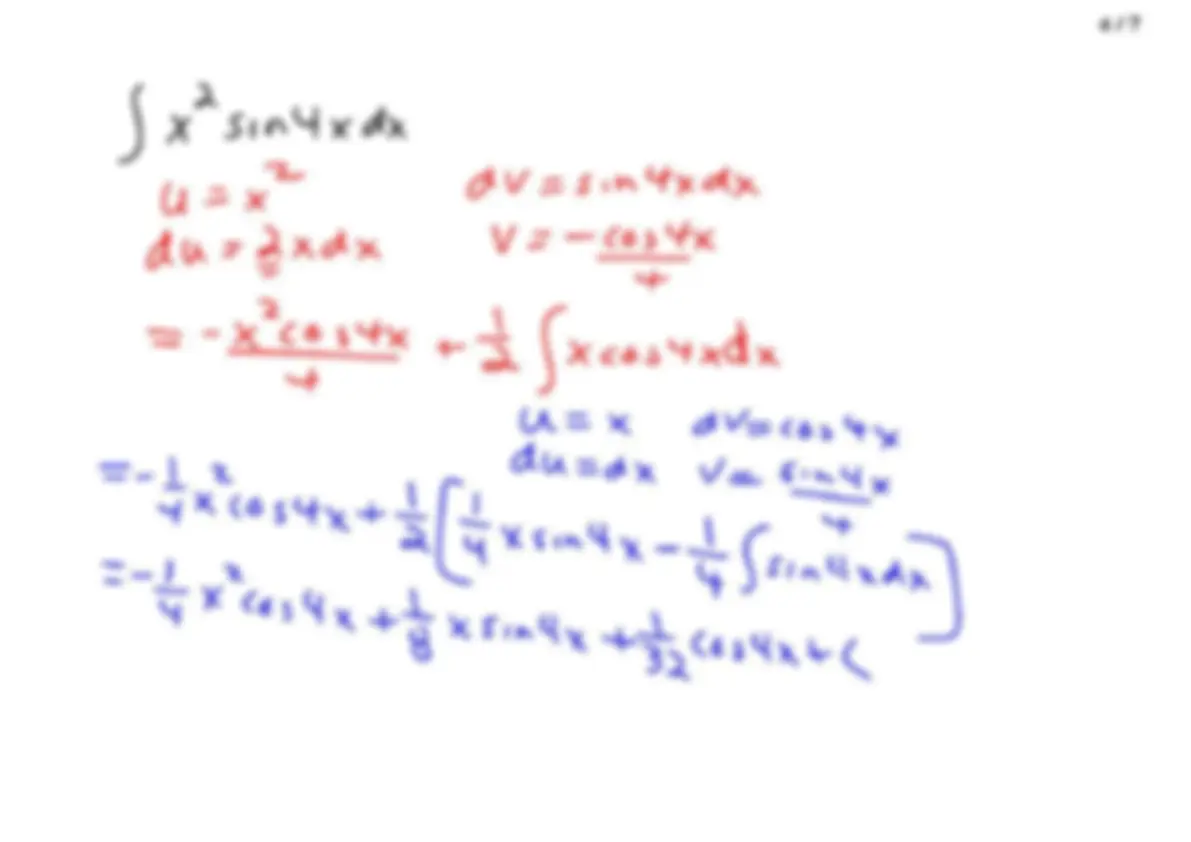 ∫ x² sin4x dx
u = x² dv = sin4x dx
du = 2x dx v = -cos4x/4
= -x²cos4x/4 + 1/2 ∫ x cos4x dx
u = x dv = cos4x
du = dx v = sin4x/4
= -1/4 x²cos4x + 1/2 [1/4 x sin4x - 1/4 ∫ sin4x dx]
= -1/4 x²cos4x + 1/8 x sin4x + 1/32 cos4x + C